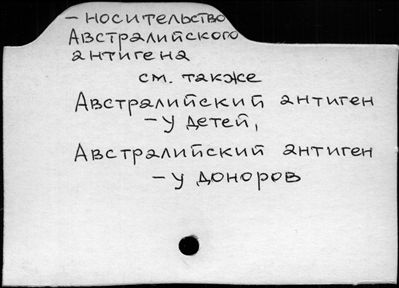 – носительство
Австралийского
антигена
см. также
Австралийский антиген
– у детей,
Австралийский антиген
– у доноров